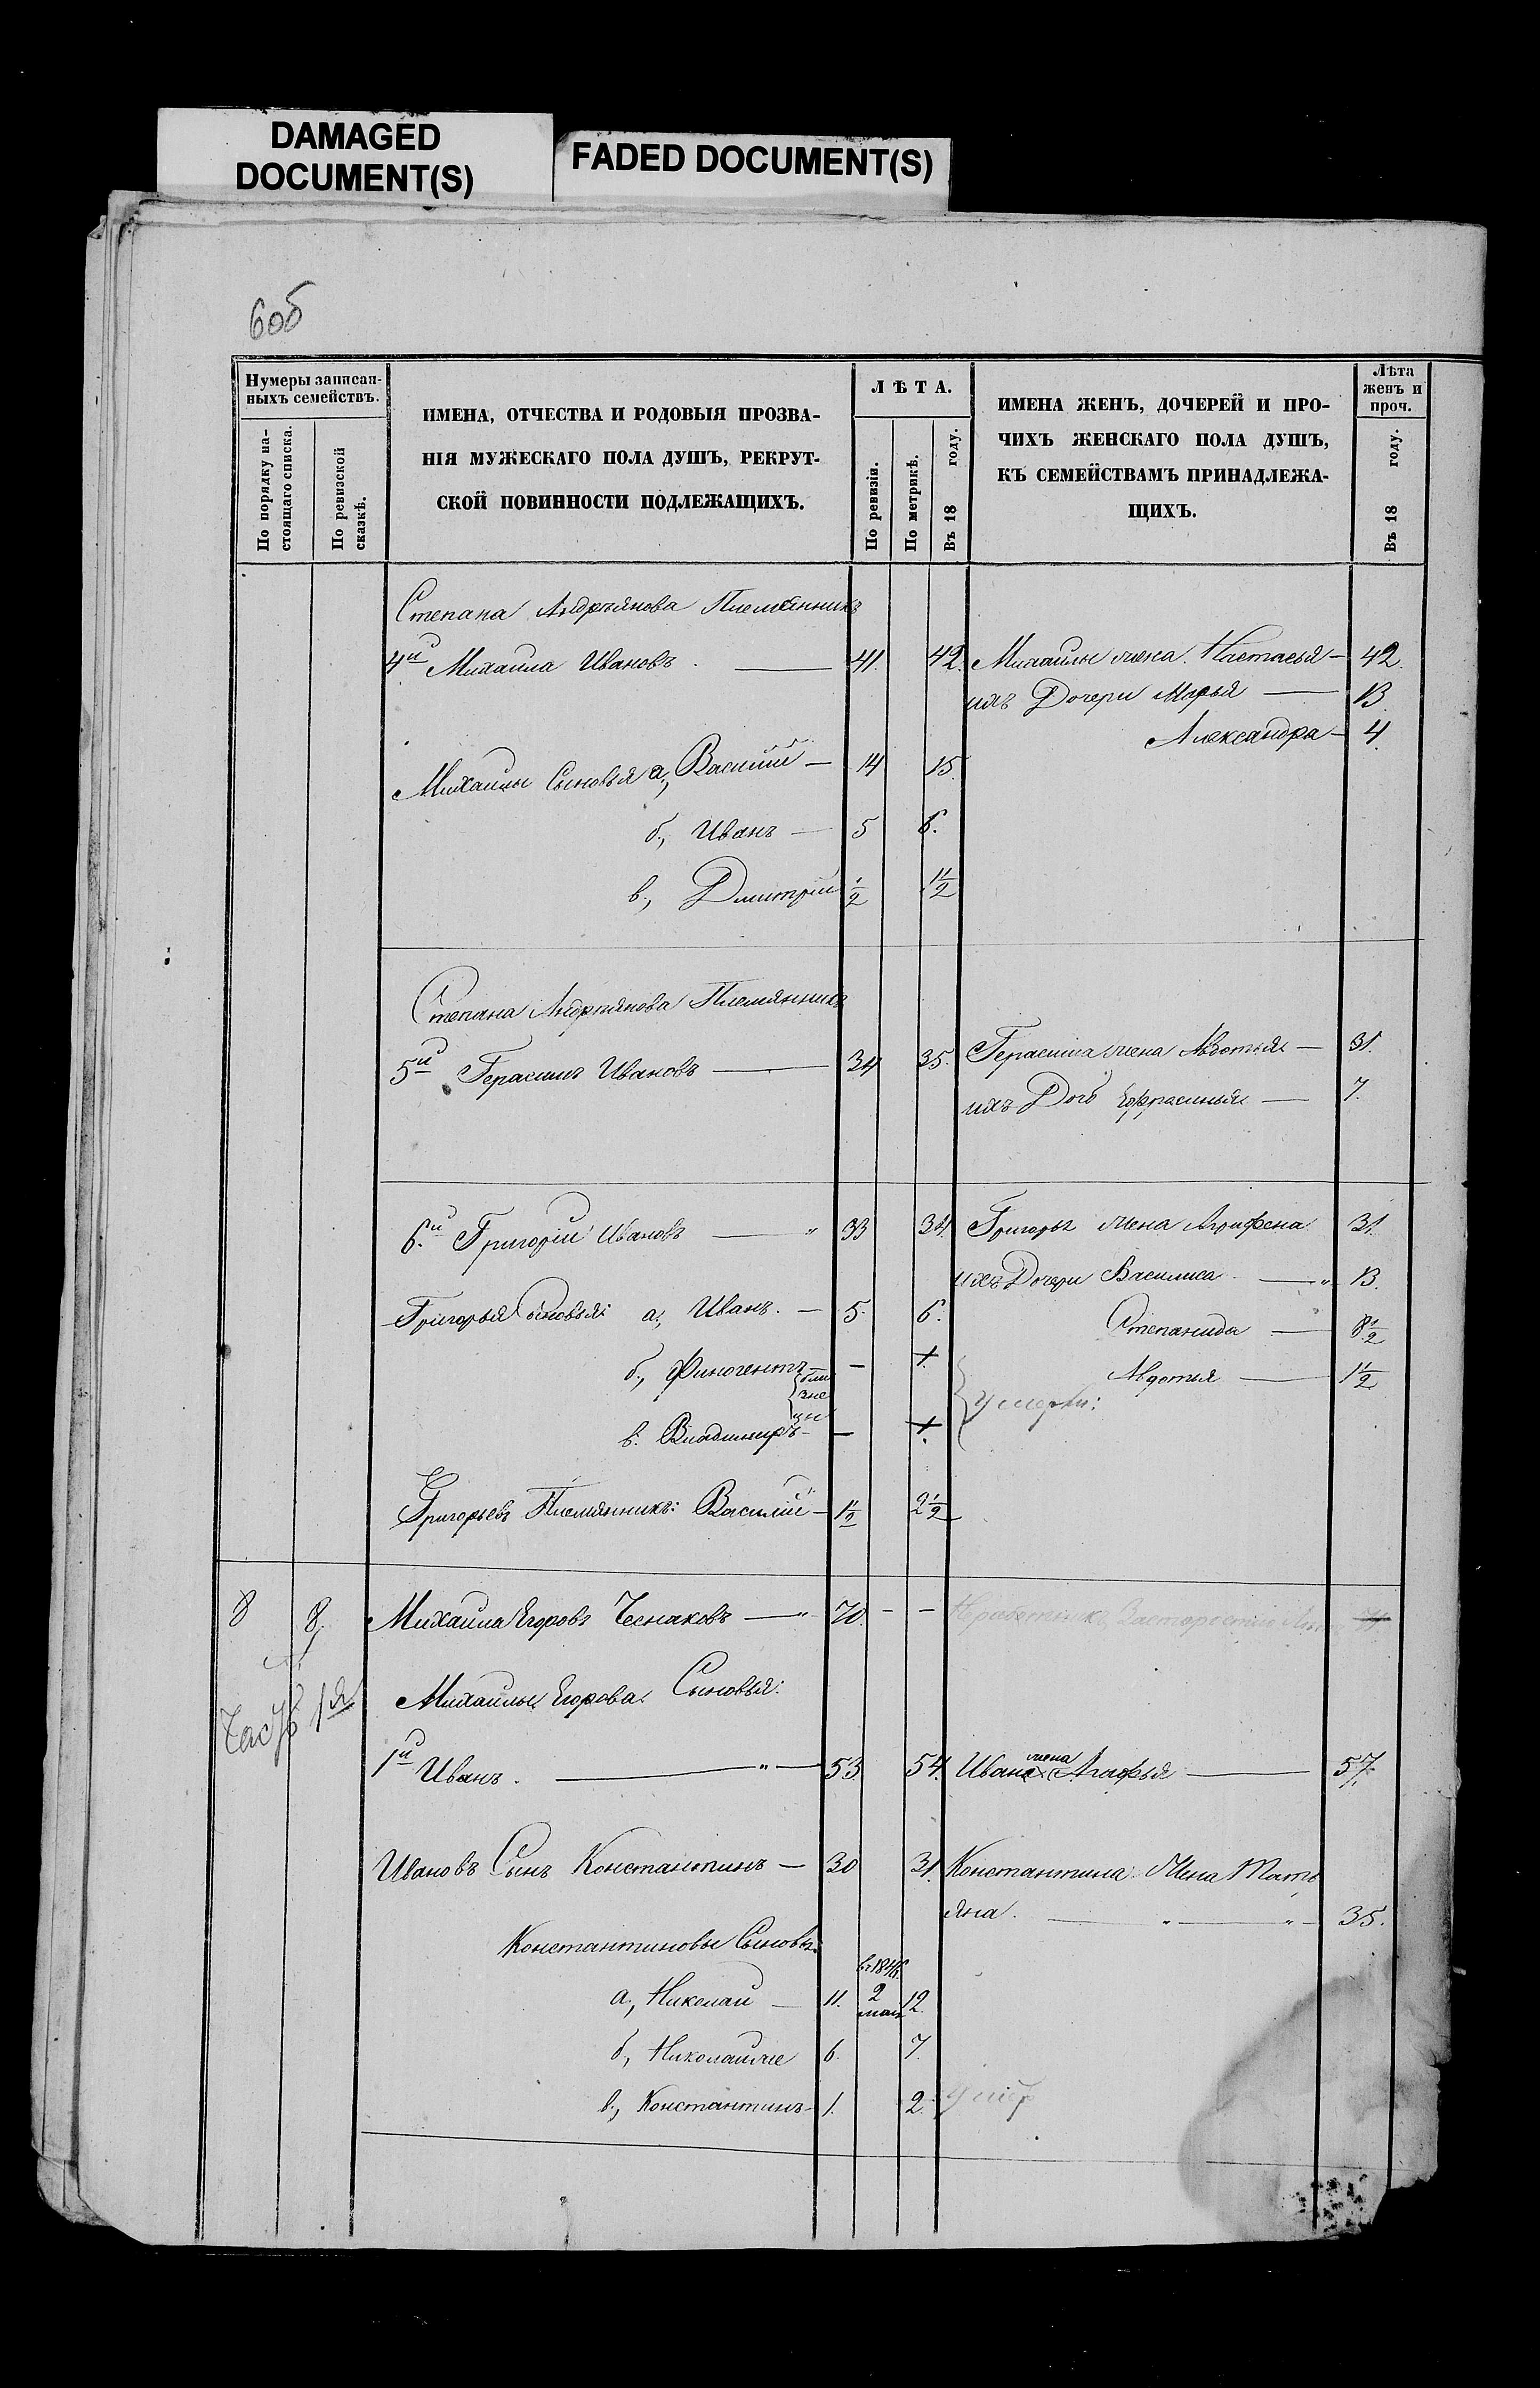 DAMAGED
DOCUMENT(S)
FADED DOCUMENT(S)
6об
Нумеры записан-
ныхъ семействъ.
По порядку на-
стоящаго списка.
По ревизской
сказкѣ.
ИМЕНА, ОТЧЕСТВА И РОДОВЫЯ ПРОЗВА-
НІЯ МУЖЕСКАГО ПОЛА ДУШЪ, РЕКРУТ-
СКОЙ ПОВИННОСТИ ПОДЛЕЖАЩИХЪ.
ЛѢТА.
По ревизіи.
По метрикѣ.
Въ 18 году.
ИМЕНА ЖЕНЪ, ДОЧЕРЕЙ И ПРО-
ЧИХЪ ЖЕНСКАГО ПОЛА ДУШЪ,
КЪ СЕМЕЙСТВАМЪ ПРИНАДЛЕЖА-
ЩИХЪ.
Лѣта
женъ и
проч.
Въ 18 году.
Степана Андреянова Племянникъ
4й Михаила Ивановъ. — 41. 42. Михаилы жена Настасья — 42.
ихъ Дочери Марья — 13.
Александра — 4.
Михаилы Сыновья а., Василій — 14 15.
б., Иванъ — 5 6.
в., Дмитрій 1/2 1 1/2
Степана Андреянова Племянникъ
5й Герасимъ Ивановъ — 34 35. Герасима жена Авдотья — 31.
ихъ Дочь Ефрасинья — 7.
6.й Григорій Ивановъ — " 33 34. Григорья жена Агрифена 31.
ихъ Дочери Василиса — " 13.
Григорья Сыновья: а., Иванъ. — 5. 6. Степанида — 8 1/2
б., Финогентъ — — + Авдотья — 1 1/2
бли
зне
цы
Умерли:
в. Владимиръ — — +
Григорьевъ Племянникъ: Василій — 1 1/2 2 1/2
8 8, Михаила Егоровъ Чеснаковъ — " 70. - -
Часть 1я
Михаилы Егорова Сыновья:
1й Иванъ. — " — 53. 54. Ивана жена Агафья — 57.
Ивановъ Сынъ Константинъ — 30 31. Константина Жена Тать
яна. — " — " — 35.
Константиновы Сыновья:
а., Николай — 11. 2 мая 12.
б., Николайже 6. 7.
в., Константинъ — 1. 2. умеръ